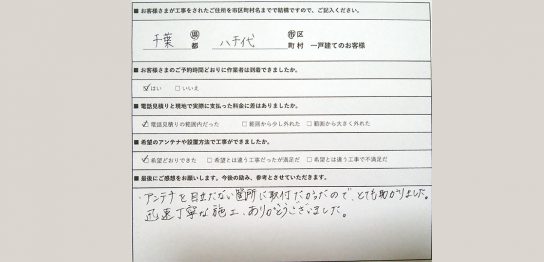 ■ お客様さまが工事をされたご住所を市区町村名までで結構ですので、ご記入ください。
千葉 県 都 八千代 市区 町村 一戸建てのお客様
■ お客様さまのご予約時間どおりに作業者は到着できましたか。
☑はい □いいえ
■ 電話見積りと現地で実際に支払った料金に差はありましたか。
☑電話見積りの範囲内だった □範囲から少し外れた □範囲から大きく外れた
■ 希望のアンテナや設置方法で工事ができましたか。
☑希望どおりできた □希望とは違う工事だったが満足だ □希望とは違う工事で不満足だ
■ 最後にご感想をお願いします。今後の励み、参考とさせていただきます。
アンテナを目立たない箇所に取付たかったので、とても助かりました。
迅速丁寧な施工、ありがとうございました。